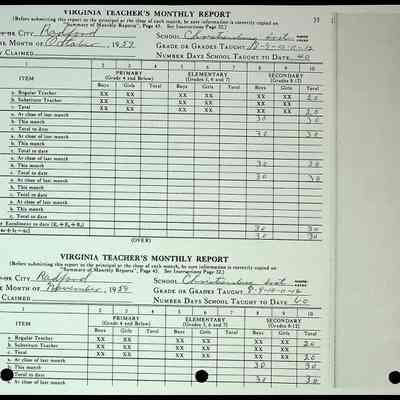 VIRGINIA TEACHER'S MONTHLY REPORT
(Before submitting this report to the principal at the close of each month, be sure information is correctly copied on
"Summary of Monthly Reports", Page 45. See Instructions Page 32.)
CITY Radford SCHOOL Christiansburg Inst.
MONTH OF October, 1959 GRADE OR GRADES TAUGHT
CLAIMED NUMBER DAYS SCHOOL TAUGHT TO DATE 40
1 2 3 4 5 6 7 8 9 10
ITEM PRIMARY (Grade 4 and Below) ELEMENTARY (Grades 5, 6 and 7) SECONDARY (Grades 8-12)
Boys Girls Total Boys Girls Total Boys Girls Total
a. Regular Teacher XX XX XX XX XX XX 20
b. Substitute Teacher XX XX XX XX XX XX
c. Total XX XX XX XX XX XX 20
a. At close of last month 30 30
b. This month
c. Total to date 30 30
a. At close of last month
b. This month
c. Total to date
a. At close of last month
b. This month 30 30
c. Total to date
a. At close of last month 30 30
b. This month
c. Total to date
a. At close of last month
b. This month
c. Total to date
a. At close of last month
b. This month
c. Total to date
Enrollment to date 30 30
30 30
(OVER)
VIRGINIA TEACHER'S MONTHLY REPORT
(Before submitting this report to the principal at the close of each month, be sure information is correctly copied on
"Summary of Monthly Reports", Page 45. See Instructions Page 32.)
CITY Radford SCHOOL Christiansburg Inst.
MONTH OF November, 1959 GRADE OR GRADES TAUGHT 8-9-10-11-12
CLAIMED NUMBER DAYS SCHOOL TAUGHT TO DATE 60
1 2 3 4 5 6 7 8 9 10
ITEM PRIMARY (Grade 4 and Below) ELEMENTARY (Grades 5, 6 and 7) SECONDARY (Grades 8-12)
Boys Girls Total Boys Girls Total Boys Girls Total
a. Regular Teacher XX XX XX XX XX XX 20
b. Substitute Teacher XX XX XX XX XX XX
c. Total XX XX XX XX XX XX 20
a. At close of last month 30 30
This month
Total to date 30 30
a. At close of last month